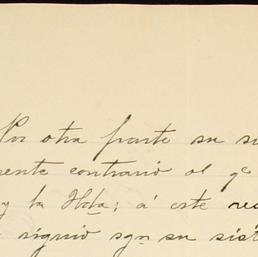 Por otra parte su su
mente contrario al qe
y la Hata; á este res
siguió sgn su sist